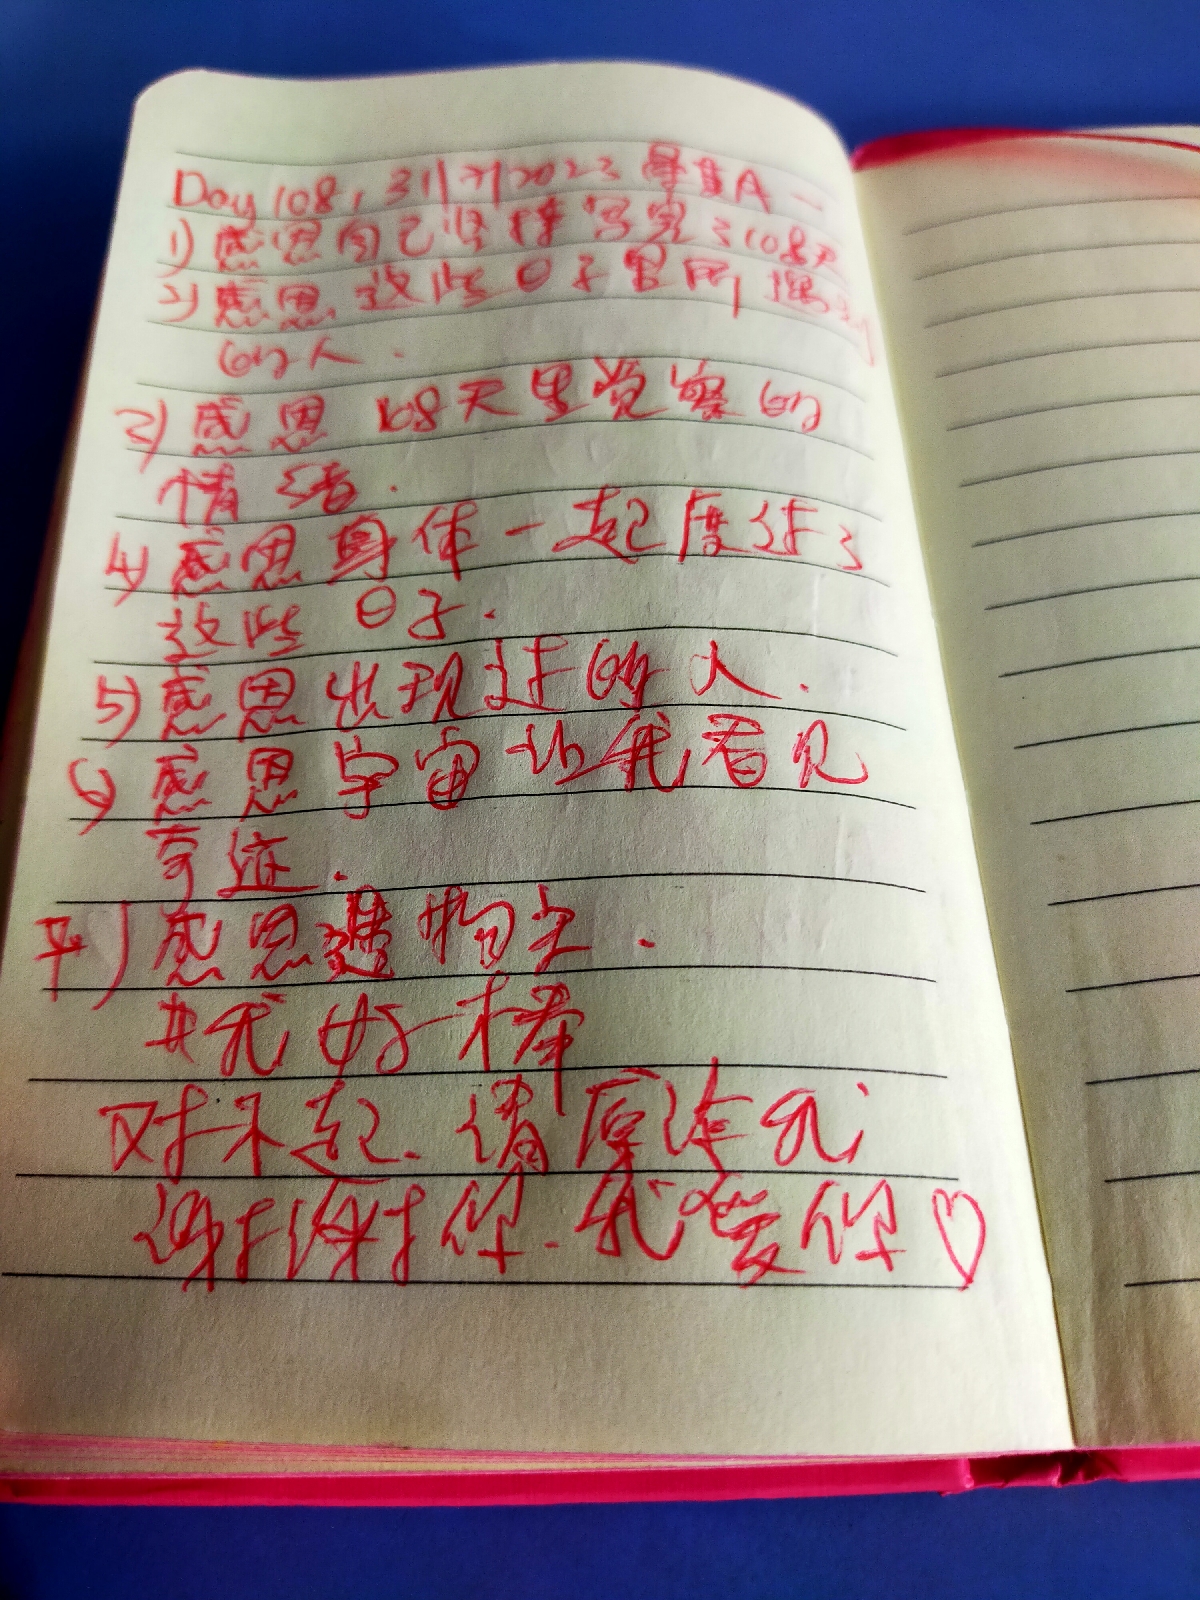 Day 108, 31/7/2023 星 A 一
1) 感恩自己坚持写完了108天
2) 感恩这些日子里所遇到
的人.
3) 感恩 108天里觉察的
情绪.
4) 感恩身体一起度过了
这些日子.
5) 感恩出现过的人.
6) 感恩宇宙让我看见
奇迹.
7) 感恩造物主.
#我好棒
对不起. 请原谅我
谢谢你. 我爱你♡